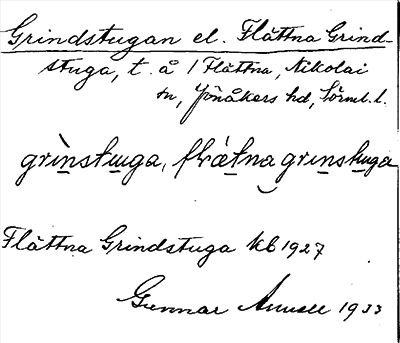 Grindstugan el. Flättna Grind-
stuga, t. å 1 Flättna, Nikolai
sn, Jönåkers hd, Sörml. l.
grìnstuga, flrätna grinstuga
Flättna Grindstuga kb 1927
Gunnar 1933